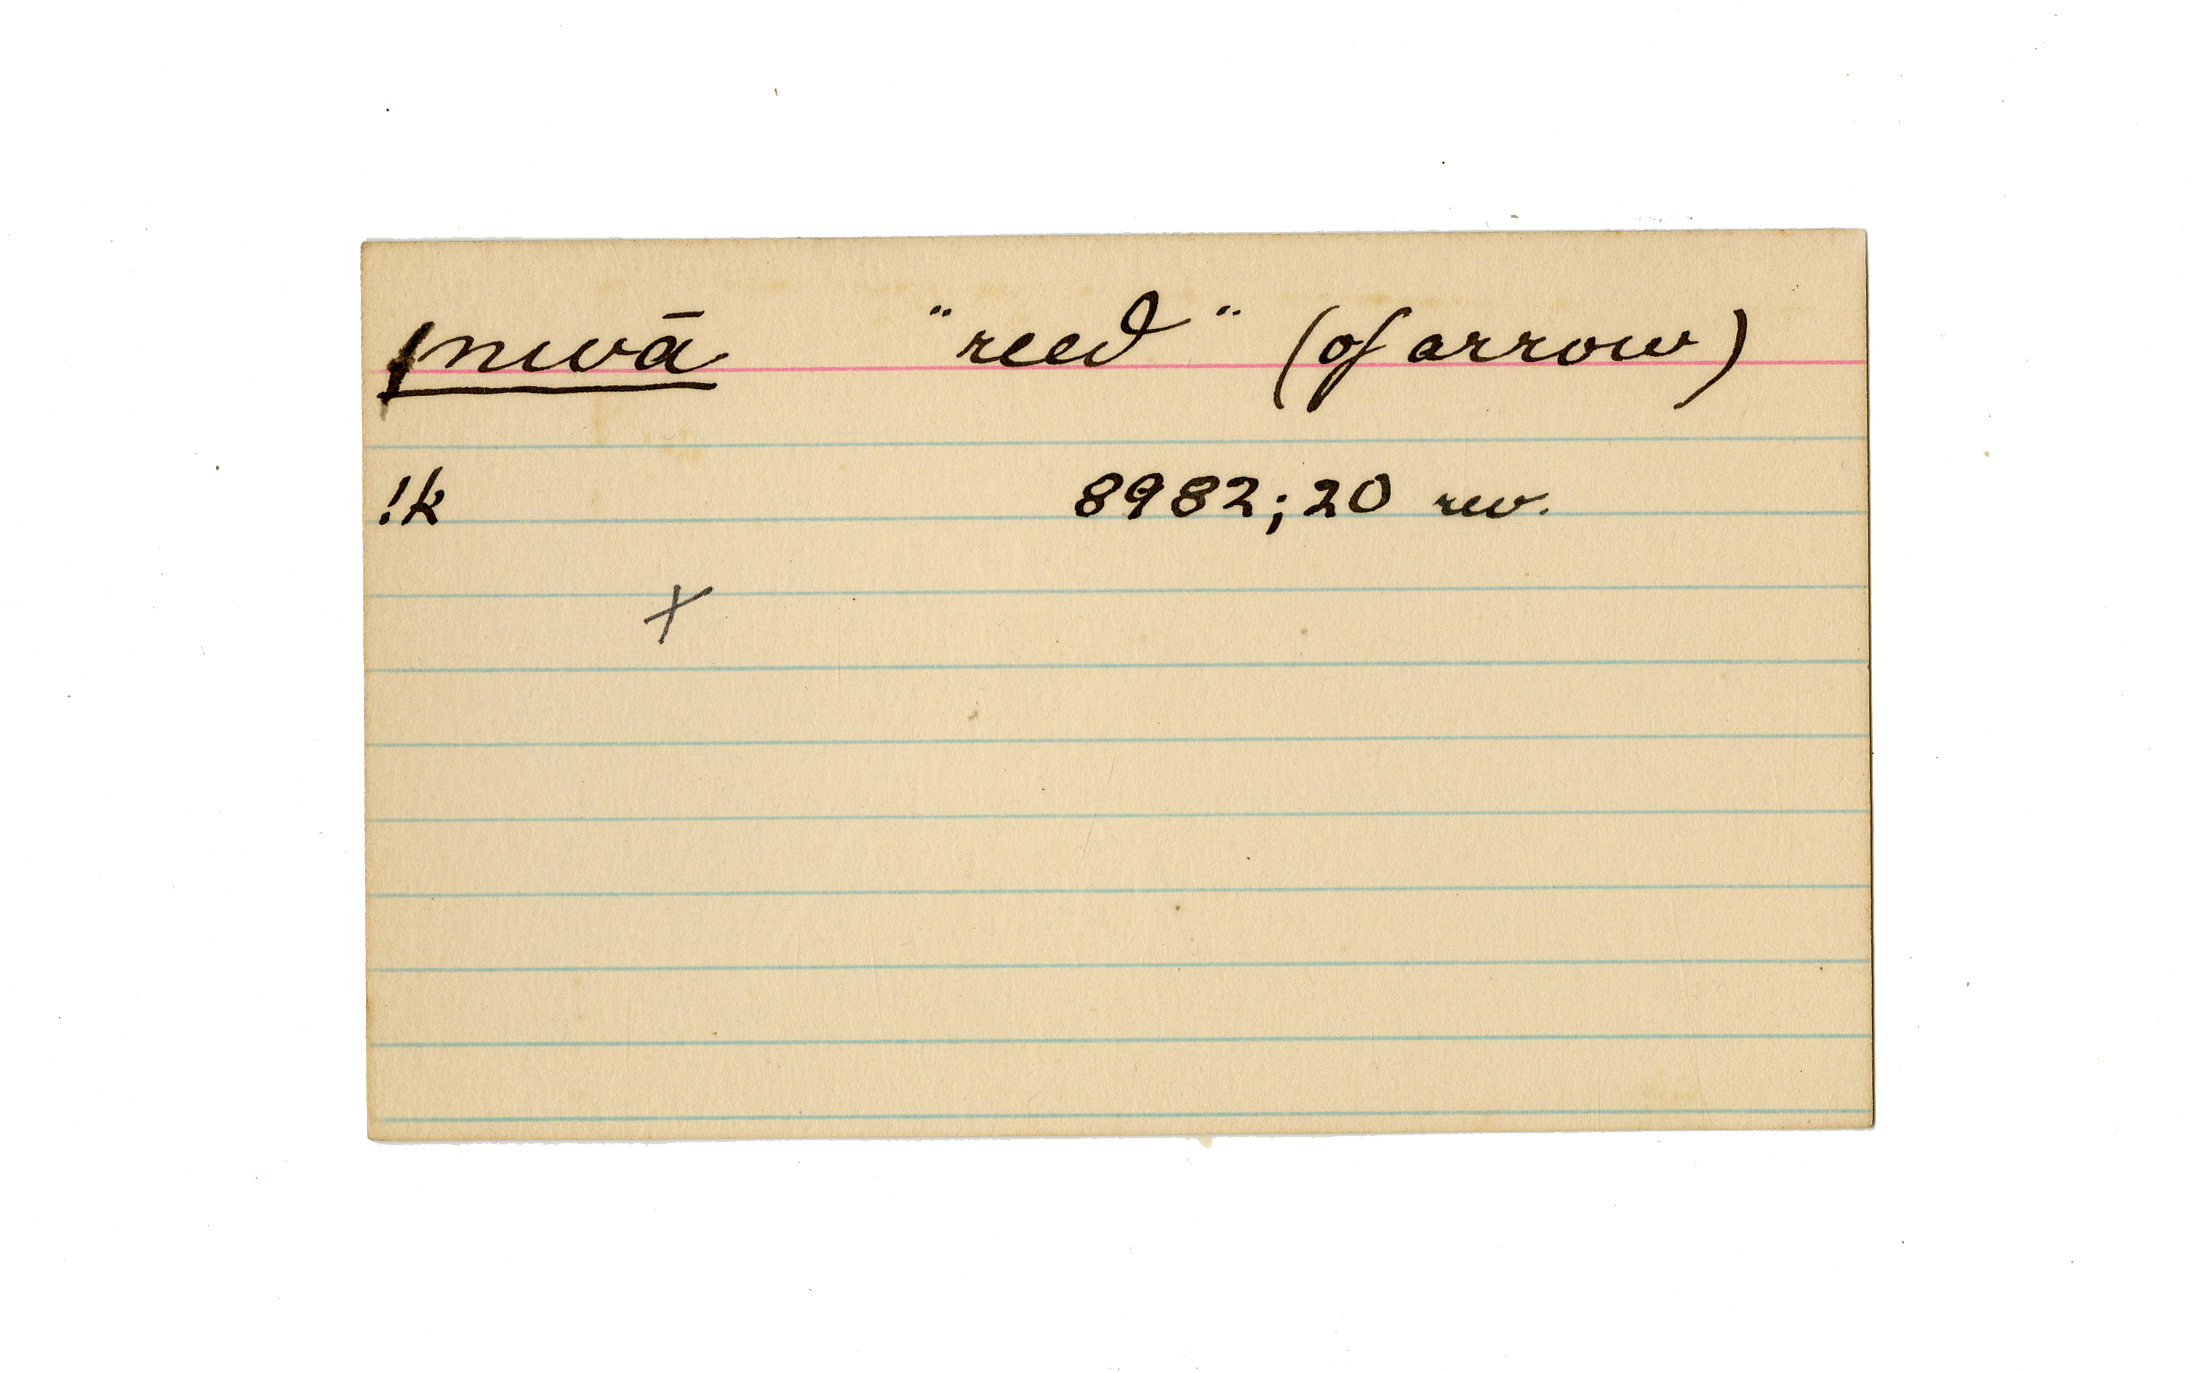 /nwā "reed" (of arrow)
!k 8982; 20 rev.
X